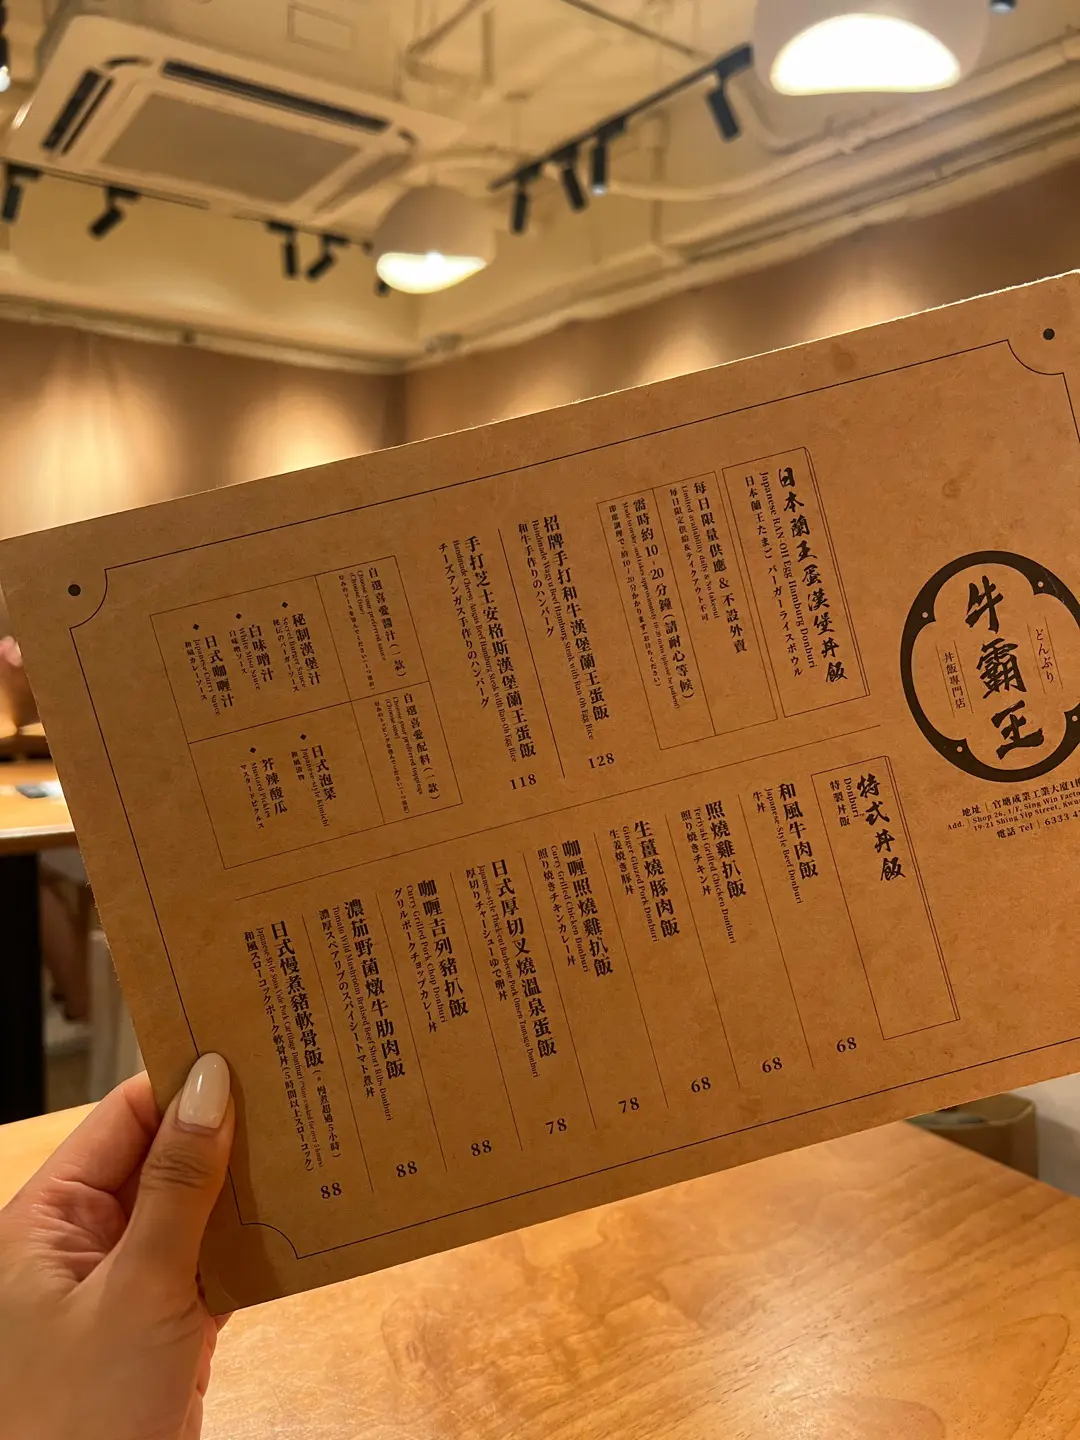 牛霸王
どんぶり
丼飯專門店
地址｜官塘成業工業大廈1樓
Add. | Shop 26, 1/F, Sing Win Factory
19-21 Shing Yip Street, Kwun
電話 Tel｜6333 4
日本蘭王蛋漢堡丼飯
Japanese RAN-OH Egg Hamburg Donburi
日本蘭王たまご バーガーライスボウル
每日限量供應 & 不設外賣
Limited availability daily & No takeout
毎日限定供給&テイクアウト不可
需時約10-20分鐘(請耐心等候)
招牌手打和牛漢堡蘭王蛋飯
Handmade Wagyu Beef Hamburg Steak with Ran Oh Egg Rice
和牛手作りのハンバーグ
128
手打芝士安格斯漢堡蘭王蛋飯
Handmade Cheesy Angus Beef Hamburg Steak with Ran Oh Egg Rice
チーズアンガス手作りのハンバーグ
118
自選喜愛醬汁(一款)
Choose your preferred sauce
(Choose One)
◆ 秘制漢堡汁
Secret Burger Sauce
秘伝のバーガーソース
◆ 白味噌汁
White Miso Sauce
白味噌ソース
◆ 日式咖喱汁
Japanese Curry Sauce
和風カレーソース
自選喜愛配料(一款)
Choose your preferred topping
(Choose One)
◆ 日式泡菜
Japanese-style Kimchi
和風漬物
◆ 芥辣酸瓜
Mustard Pickles
マスタードピクルス
特式丼飯
Donburi
特製丼飯
和風牛肉飯
Japanese Style Beef Donburi
牛丼
68
照燒雞扒飯
Teriyaki Grilled Chicken Donburi
照り焼きチキン丼
68
生薑燒豚肉飯
Ginger Glazed Pork Donburi
生姜焼き豚丼
68
咖喱照燒雞扒飯
Curry Grilled Chicken Donburi
照り焼きチキンカレー丼
78
日式厚切叉燒溫泉蛋飯
Japanese-style Thick-cut Barbecue Pork Onsen Tamago Donburi
厚切りチャーシューゆで卵丼
78
咖喱吉列豬扒飯
Curry Grilled Pork Chop Donburi
グリルポークチョップカレー丼
88
濃茄野菌燉牛肋肉飯
Tomato Wild Mushroom Braised Beef Short Ribs Donburi
濃厚スペアリブのスパイシートマト煮丼
88
日式慢煮豬軟骨飯(*慢煮超過5小時)
Japanese-style Sous Vide Pork Cartilage Donburi
和風スローコックポーク軟骨丼(5時間以上スローコック)
88